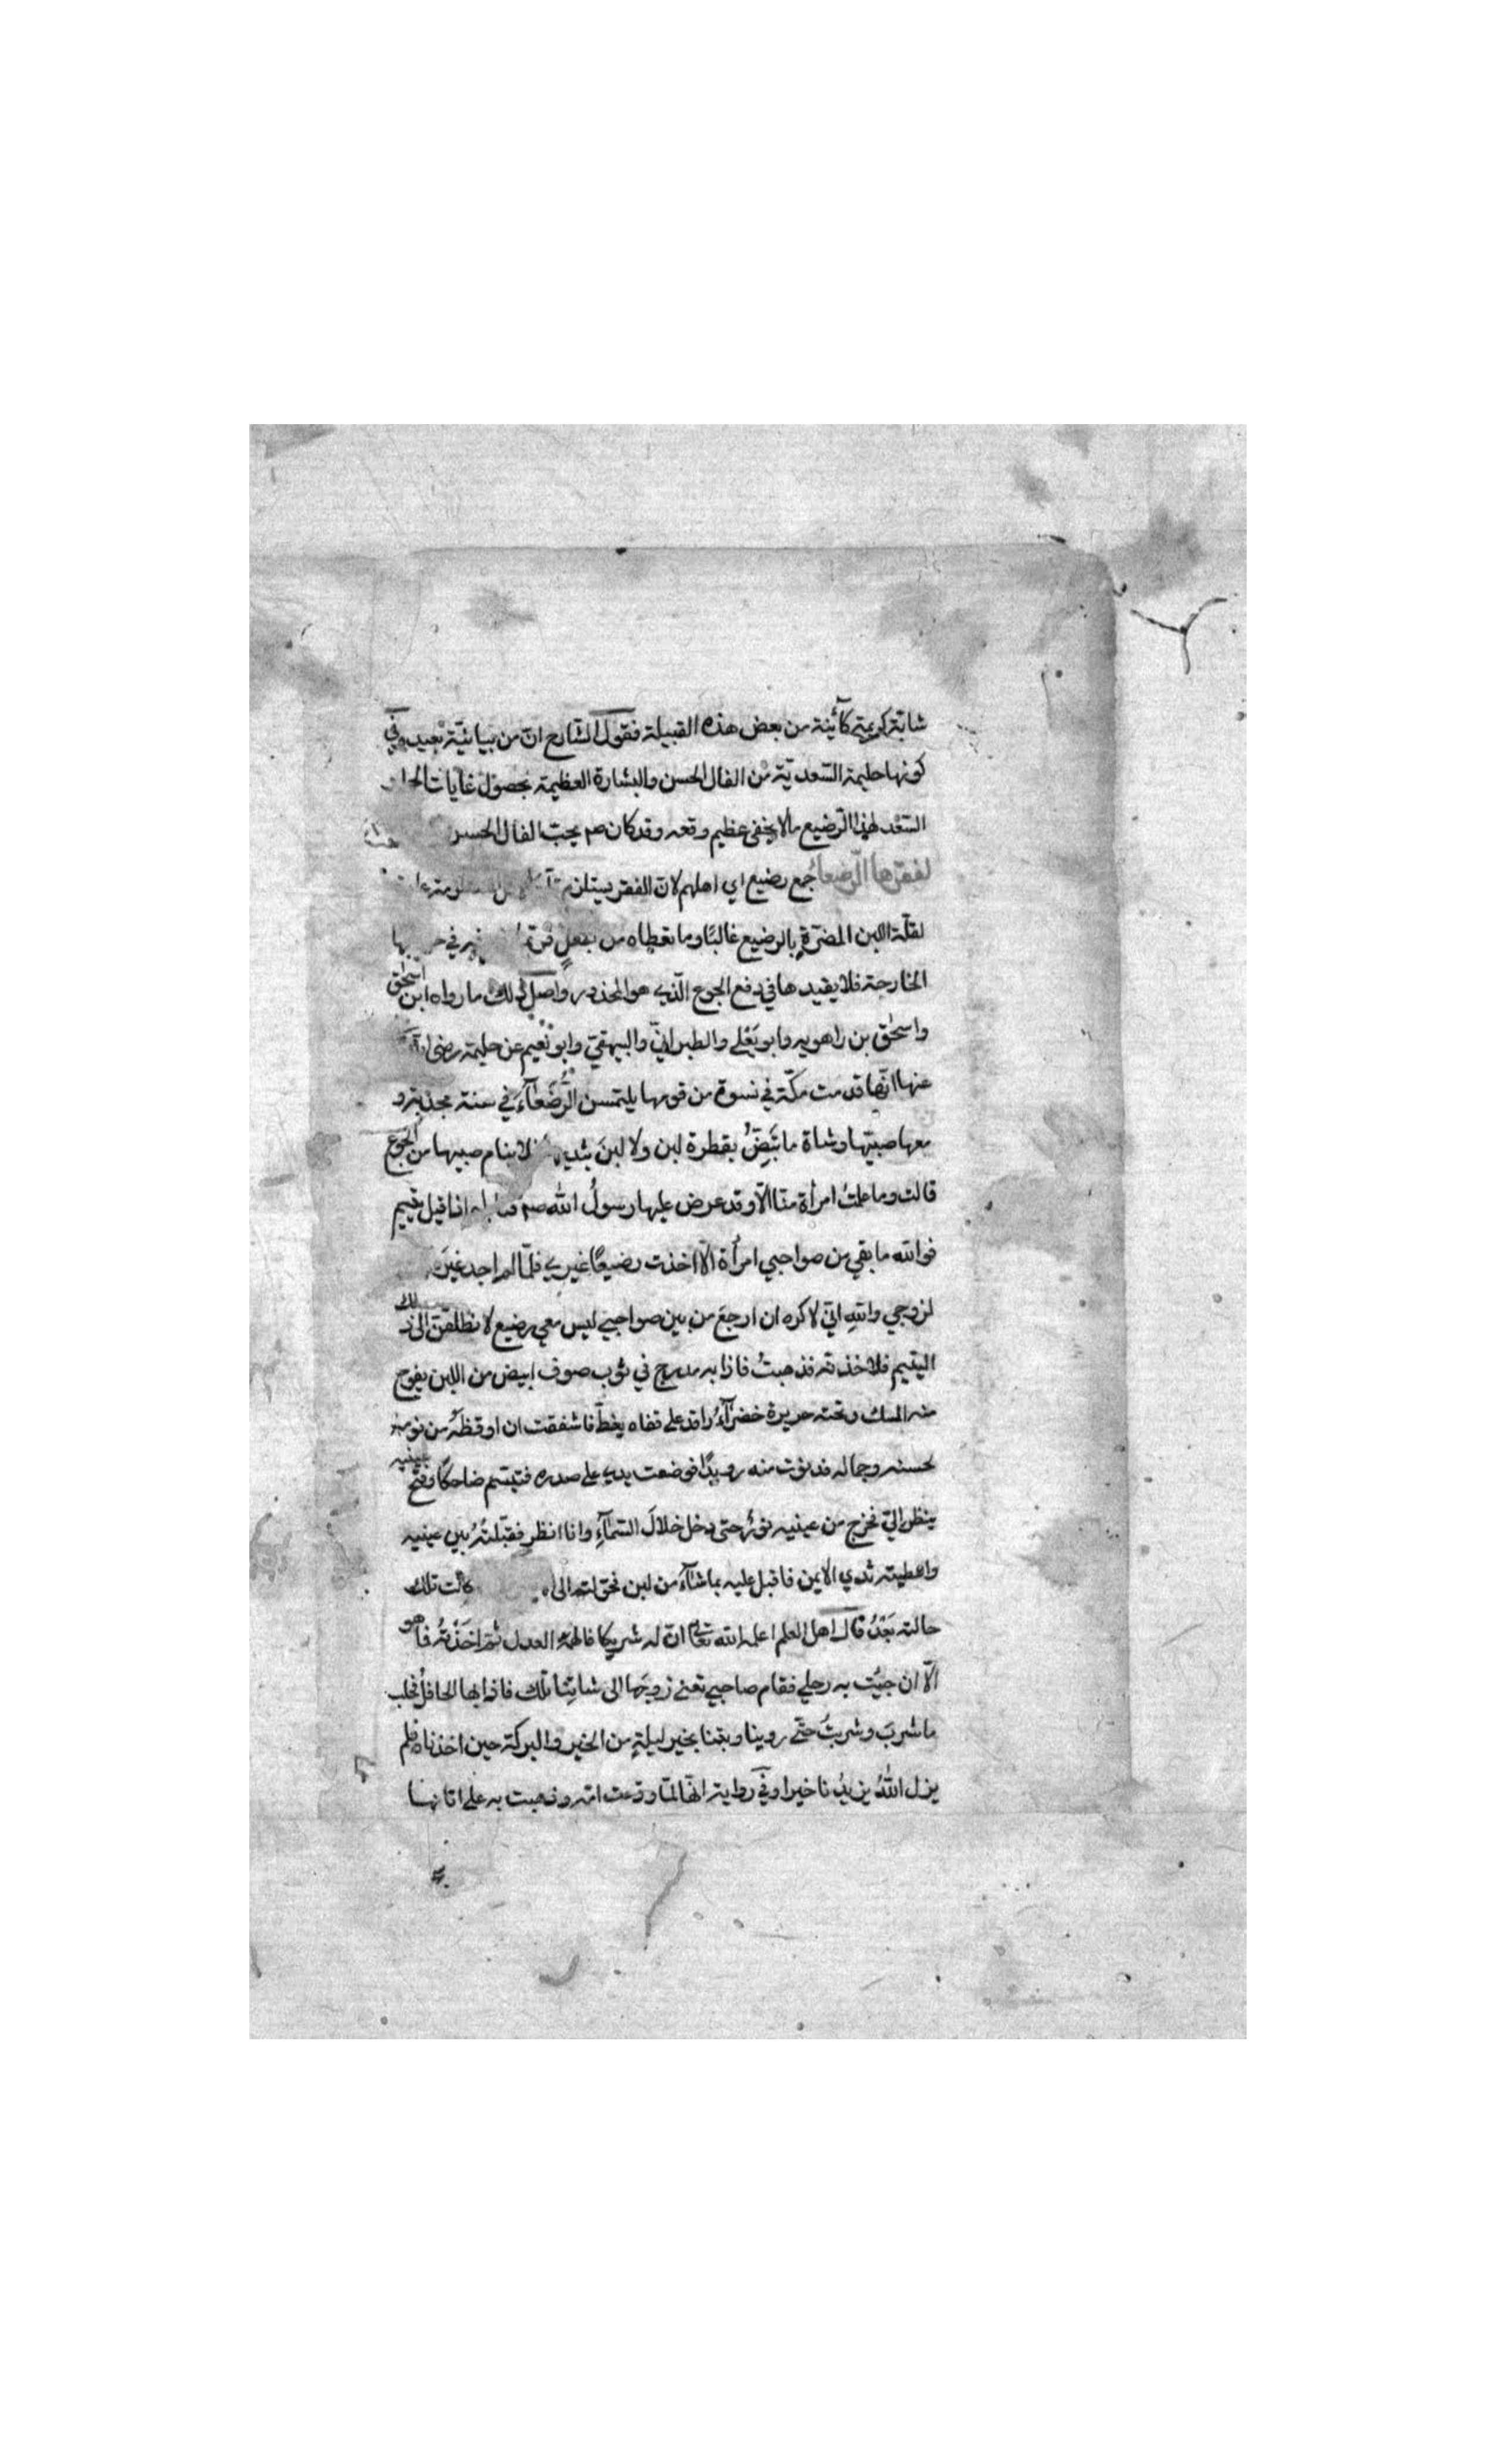 شابّة كريمة كآئنة من بعض هذه القبيلة فقول الشارح انّ من بيانيّة بعيد وفي
كونها حليمة السّعديّة من الفال الحسن والبشارة العظيمة بحصول غايات
السّعد لهذا الرّضيع مالا يخفى عظيم وقعه وقد كان صم يحبّ الفال الحسن
لفقرها الرّضعاء جمع رضيع اي اهلهم لانّ الفقر
لقلّة اللبن المضرّة بالرضيع غالبًا وما تعطاه من في
الخارجة فلا يفيدها في دفع الجوع الّذي هو المحذور واصل ذلك ما رواه ابن اسحٰق
واسحٰق بن راهويه وابو يَعْلى والطبرانيّ والبيهقيّ وابو نُعيم عن حليمة رضي
عنها انّها قدمت مكّة في نسوة من قومها يلتمسن الرُّضَعَآءَ في سنة مجدبة و
معها صبيّها وشاة ما تَبِضُّ بقطرة لبن ولا لبنَ فلا ينام صبيها من الجوع
قالت وما علمتُ امرأة منّا الّا وقد عرض عليها رسولُ الله صم اذا قيل يتيم
فوالله ما بقي من صواحبي امرأة الّا اخذت رضيعًا غيري فلمّا لم اجد غيرَه
لزوجي واللهِ انّي لاكره ان ارجعَ من بين صواحبي ليس معي رضيع لانطلقنّ الى ذلك
اليتيم فلاخذنه فذهبتُ فاذا به مدرج في ثوب صوف ابيض من اللبن يفوح
منه المسك وتحته حريرة خضرآءُ راقد على قفاه يغطّ فاشفقت ان اوقظَه من نومه
لحسنه وجماله فدنوت منه رويدًا فوضعت يدي على صدره فتبسّم ضاحكًا وفتح عينيه
ينظر اليّ فخرج من عينيه نورٌ حتى دخل خلالَ السّمآءِ وانا انظر فقبّلتُه بين عينيه
واعطيته ثدي الايمن فاقبل عليه بما شآء من لبن فحوّلته الى كانت تلك
حالته بَعْدُ قال اهل العلم اعلمه الله تعالى انّ له شريكا فالهمه العدل ثم اخذتُه فما هو
الّا ان جئت به رحلي فقام صاحبي تعني زوجَها الى شاتِنا تلك فاذا بها لحافلٌ فحلب
ما شربَ وشربتُ حتّى روينا وبتنا بخير ليلةٍ من الخير والبركة حين اخذناه فلم
يزل اللهُ يزيدُنا خيرا وفي رواية انّها لمّا ودّعت امّه وذهبت به على اتانها